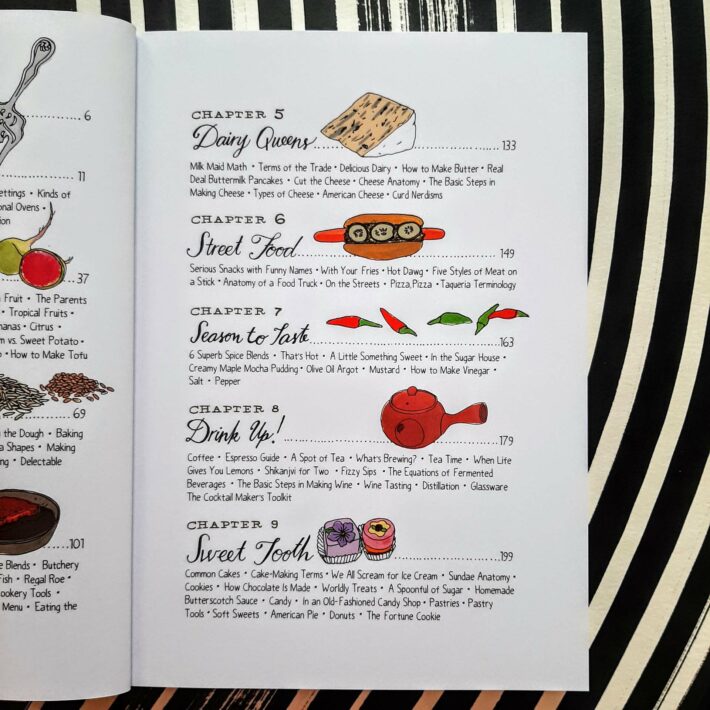 6
11
ettings • Kinds of
onal Ovens •
ion
37
Fruit • The Parents
• Tropical Fruits •
nanas • Citrus •
m vs Sweet Potato •
o • How to Make Tofu
69
g the Dough • Baking
a Shapes • Making
ing • Delectable
101
e Blends • Butchery
Fish • Regal Roe •
ookery Tools •
Menu • Eating the
CHAPTER 5
Dairy Queens 133
Milk Maid Math • Terms of the Trade • Delicious Dairy • How to Make Butter • Real
Deal Buttermilk Pancakes • Cut the Cheese • Cheese Anatomy • The Basic Steps in
Making Cheese • Types of Cheese • American Cheese • Curd Nerdisms
CHAPTER 6
Street Food 149
Serious Snacks with Funny Names • With Your Fries • Hot Dawg • Five Styles of Meat on
a Stick • Anatomy of a Food Truck • On the Streets • Pizza, Pizza • Taqueria Terminology
CHAPTER 7
Season to Taste 163
6 Superb Spice Blends • That's Hot • A Little Something Sweet • In the Sugar House •
Creamy Maple Mocha Pudding • Olive Oil Argot • Mustard • How to Make Vinegar •
Salt • Pepper
CHAPTER 8
Drink Up! 179
Coffee • Espresso Guide • A Spot of Tea • What's Brewing? • Tea Time • When Life
Gives You Lemons • Shikanjvi for Two • Fizzy Sips • The Equations of Fermented
Beverages • The Basic Steps in Making Wine • Wine Tasting • Distillation • Glassware
The Cocktail Maker's Toolkit
CHAPTER 9
Sweet Tooth 199
Common Cakes • Cake-Making Terms • We All Scream for Ice Cream • Sundae Anatomy •
Cookies • How Chocolate Is Made • Worldly Treats • A Spoonful of Sugar • Homemade
Butterscotch Sauce • Candy • In an Old-Fashioned Candy Shop • Pastries • Pastry
Tools • Soft Sweets • American Pie • Donuts • The Fortune Cookie